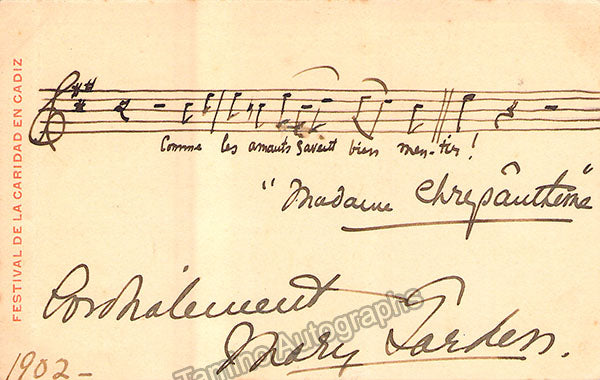 FESTIVAL DE LA CARIDAD EN CADIZ
Comme les amants savent bien men-tir!
"Madame Chrysanthème"
Cordialement
Mary Garden.
1902-
Tamino Autographs